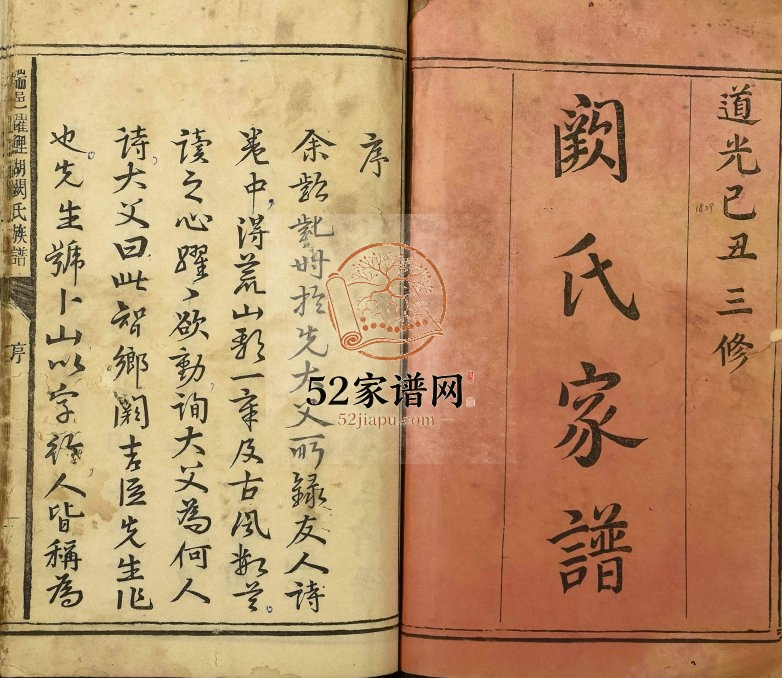 道光己丑三修
1829
闕氏家譜
序
余齠齔時於先大父所錄友人詩
卷中得荒山歌一章及古風數首
讀之心躍〻欲動詢大父為何人
詩大父曰此智鄉闕吉臣先生作
也先生號卜山以字行人皆稱為
瑞邑躍鯉湖闕氏族譜
序
52家谱网
52jiapu.com